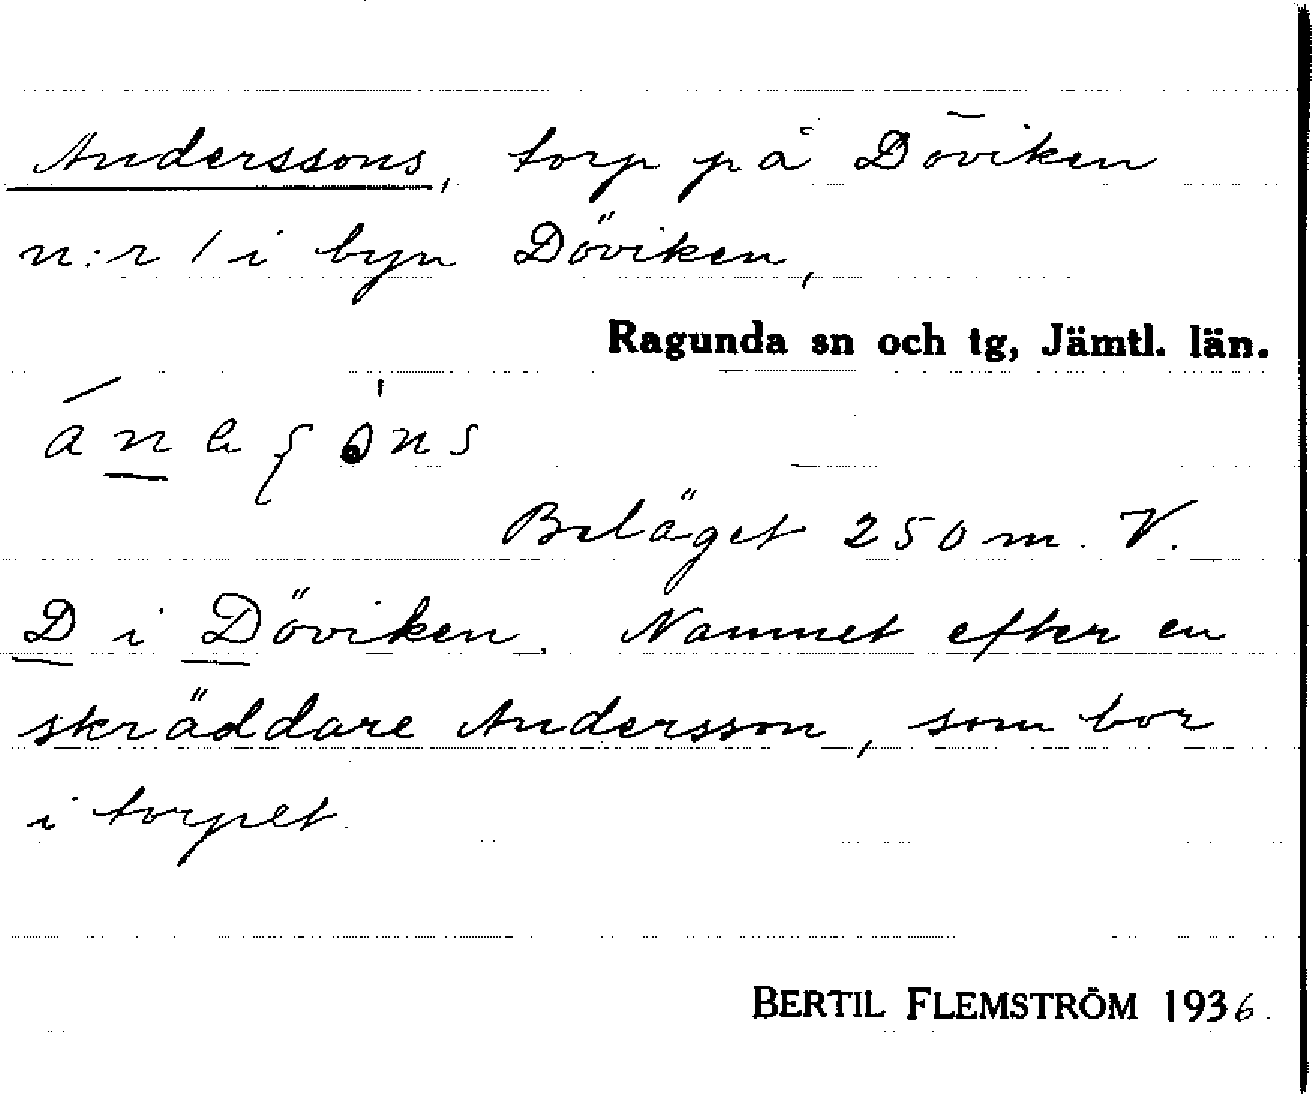 Anderssons, torp på Döviken
n:r 1 i byn Döviken,
Ragunda sn och tg, Jämtl. län.
Beläget 250 m. V.
D i Döviken. Namnet efter en
skräddare Andersson, som bor
i torpet.
BERTIL FLEMSTRÖM 1936.